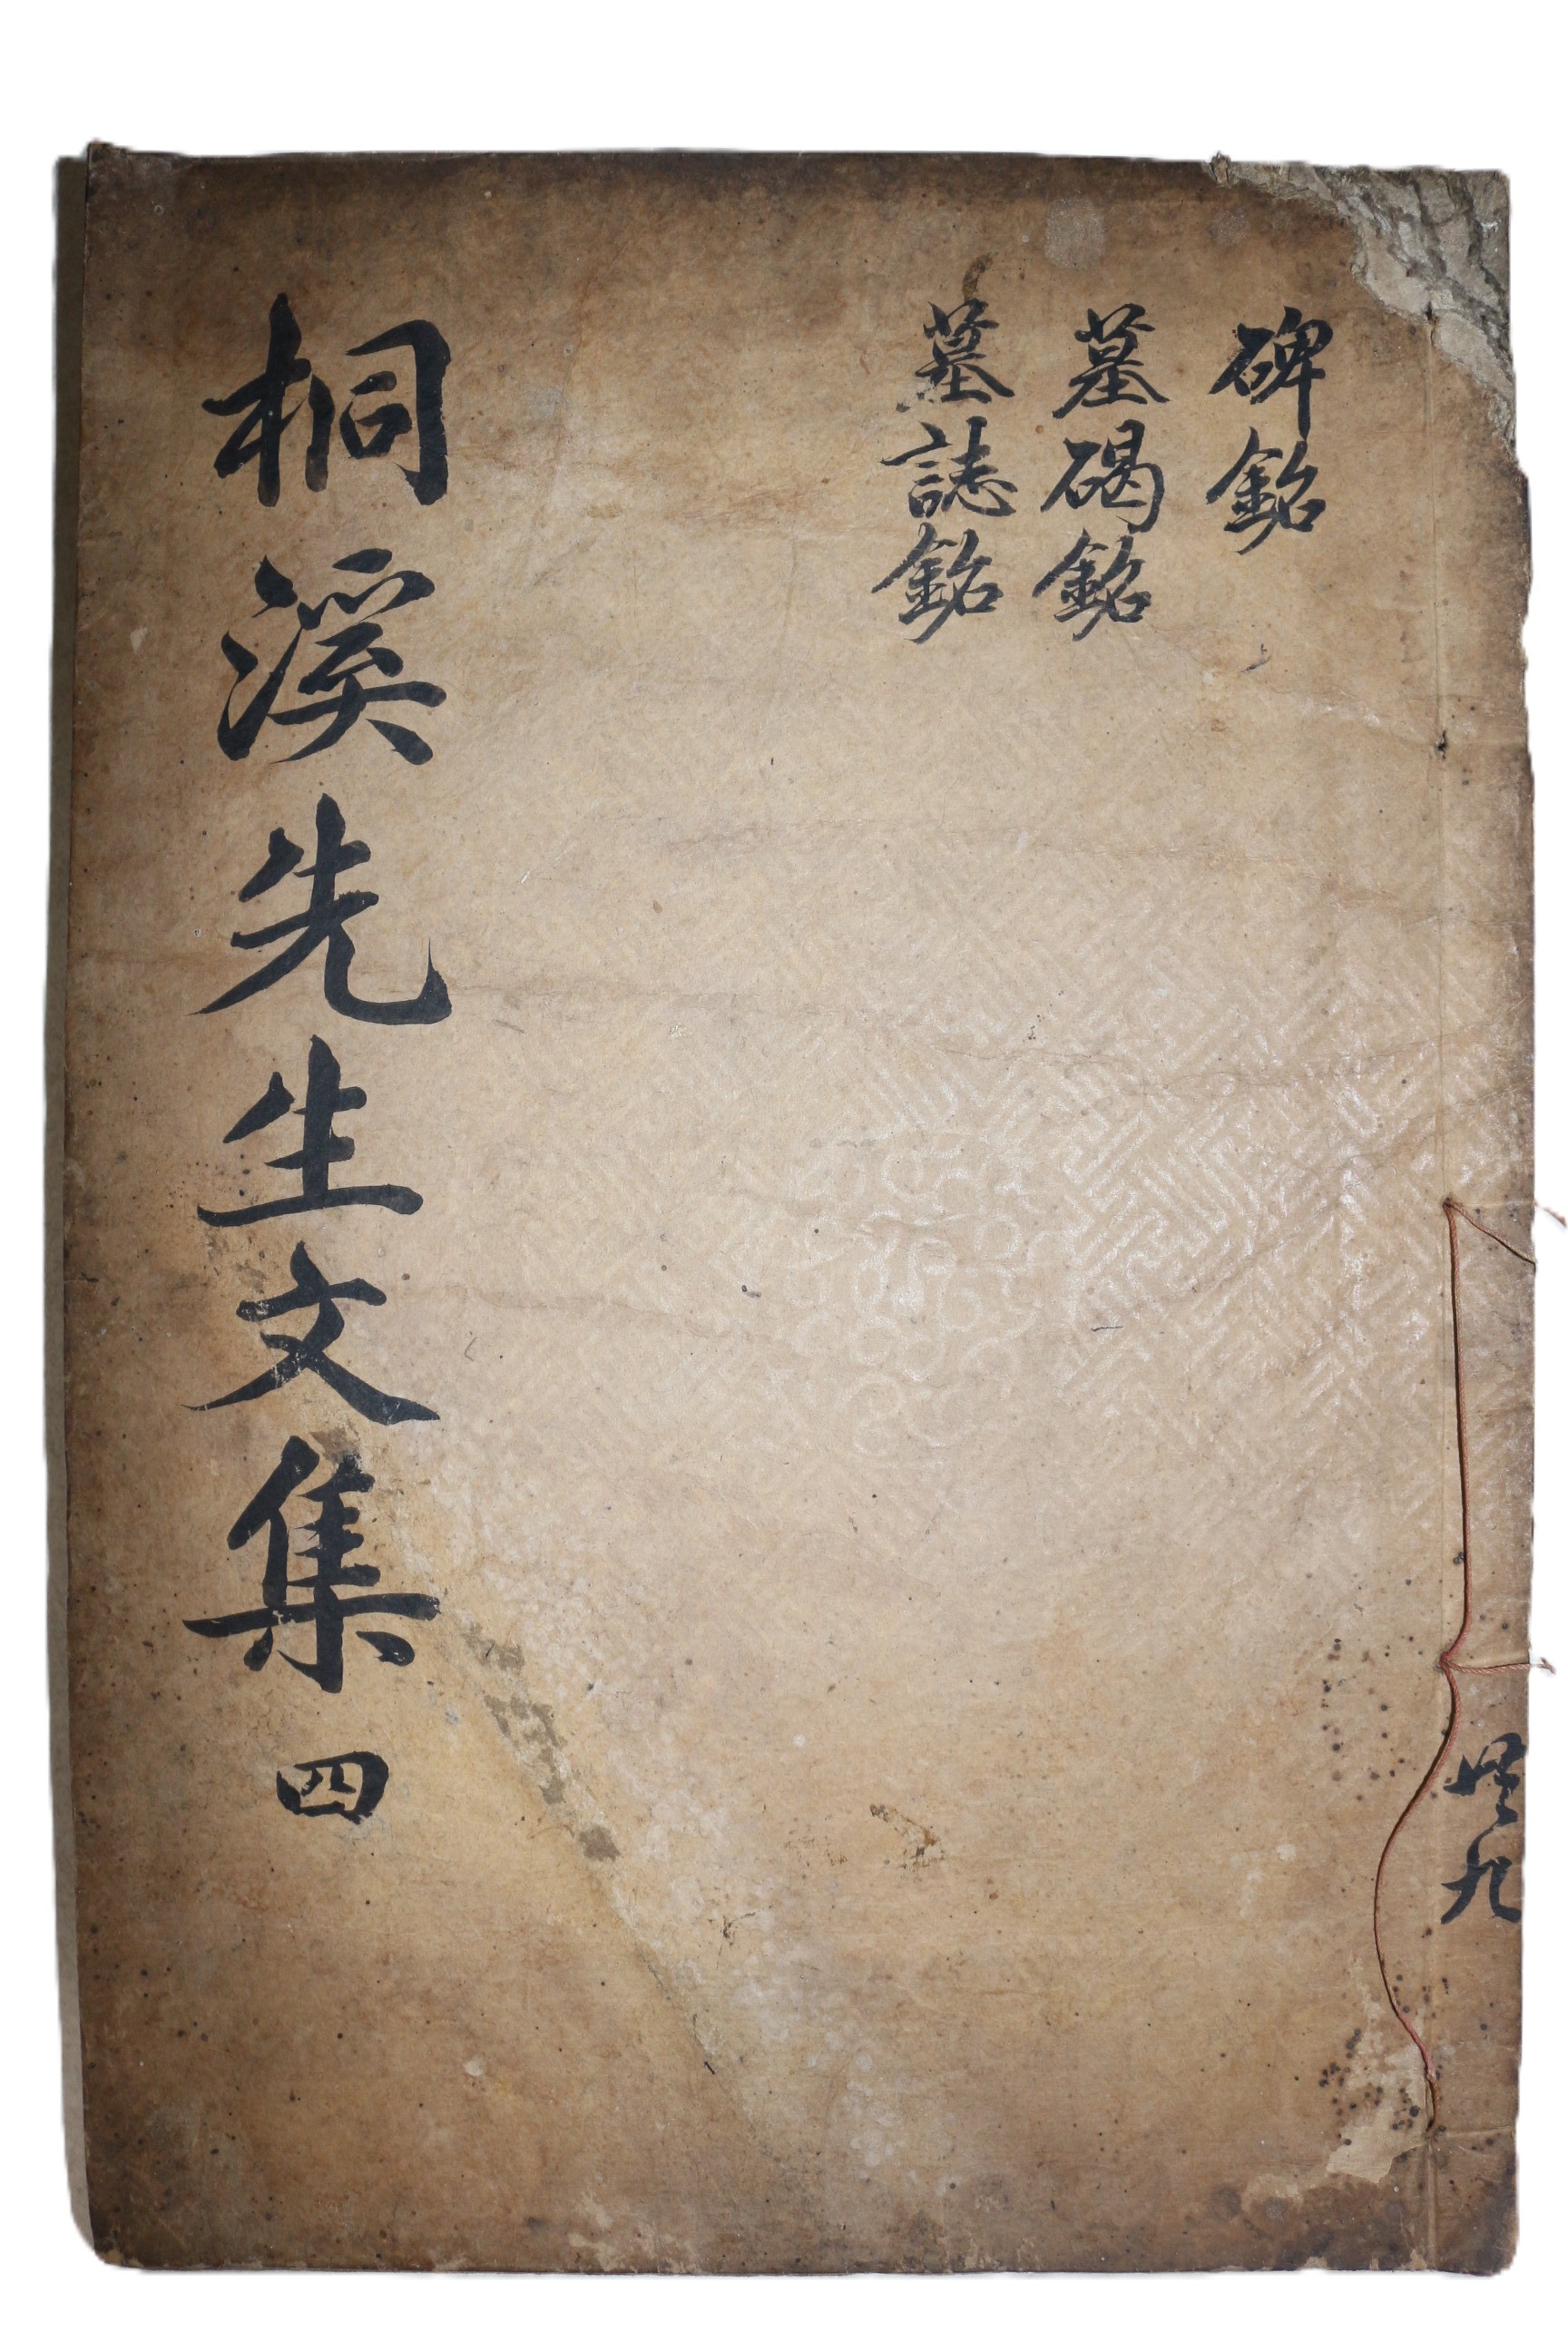 碑銘
墓碣銘
墓誌銘
桐溪先生文集 四
共九